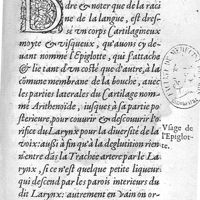 dre & noter que de la raci
ne de la langue, est dres-
sé vn corps Cartilagineux
moyte & visqueux, qu'auons cy de-
uant nommé l'Epiglotte, qui s'attache
& lie tant d'vn costé que d'autre, à la
cōmune membrane de la bouche, auec
les parties laterales du Cartilage nom-
mé Arithenoide, iusques à sa partie po-
sterieure, pour couurir & descouurir l'o-
rifice du Larynx pour la diuersité de la
voix: aussi à fin qu'à la deglutition rien n'en-
tre dans la Trachee artere par le La-
rynx, si ce n'est quelque petite liqueur
qui descend par les parois interieurs du
dit Larynx: autrement en vain on or-
Vsage de
l'Epiglot-
te.